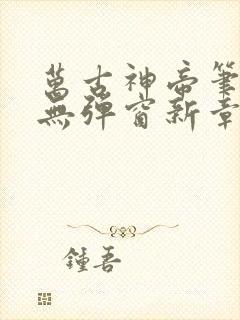 萬古神帝筆
無彈窗新章
鍾吾